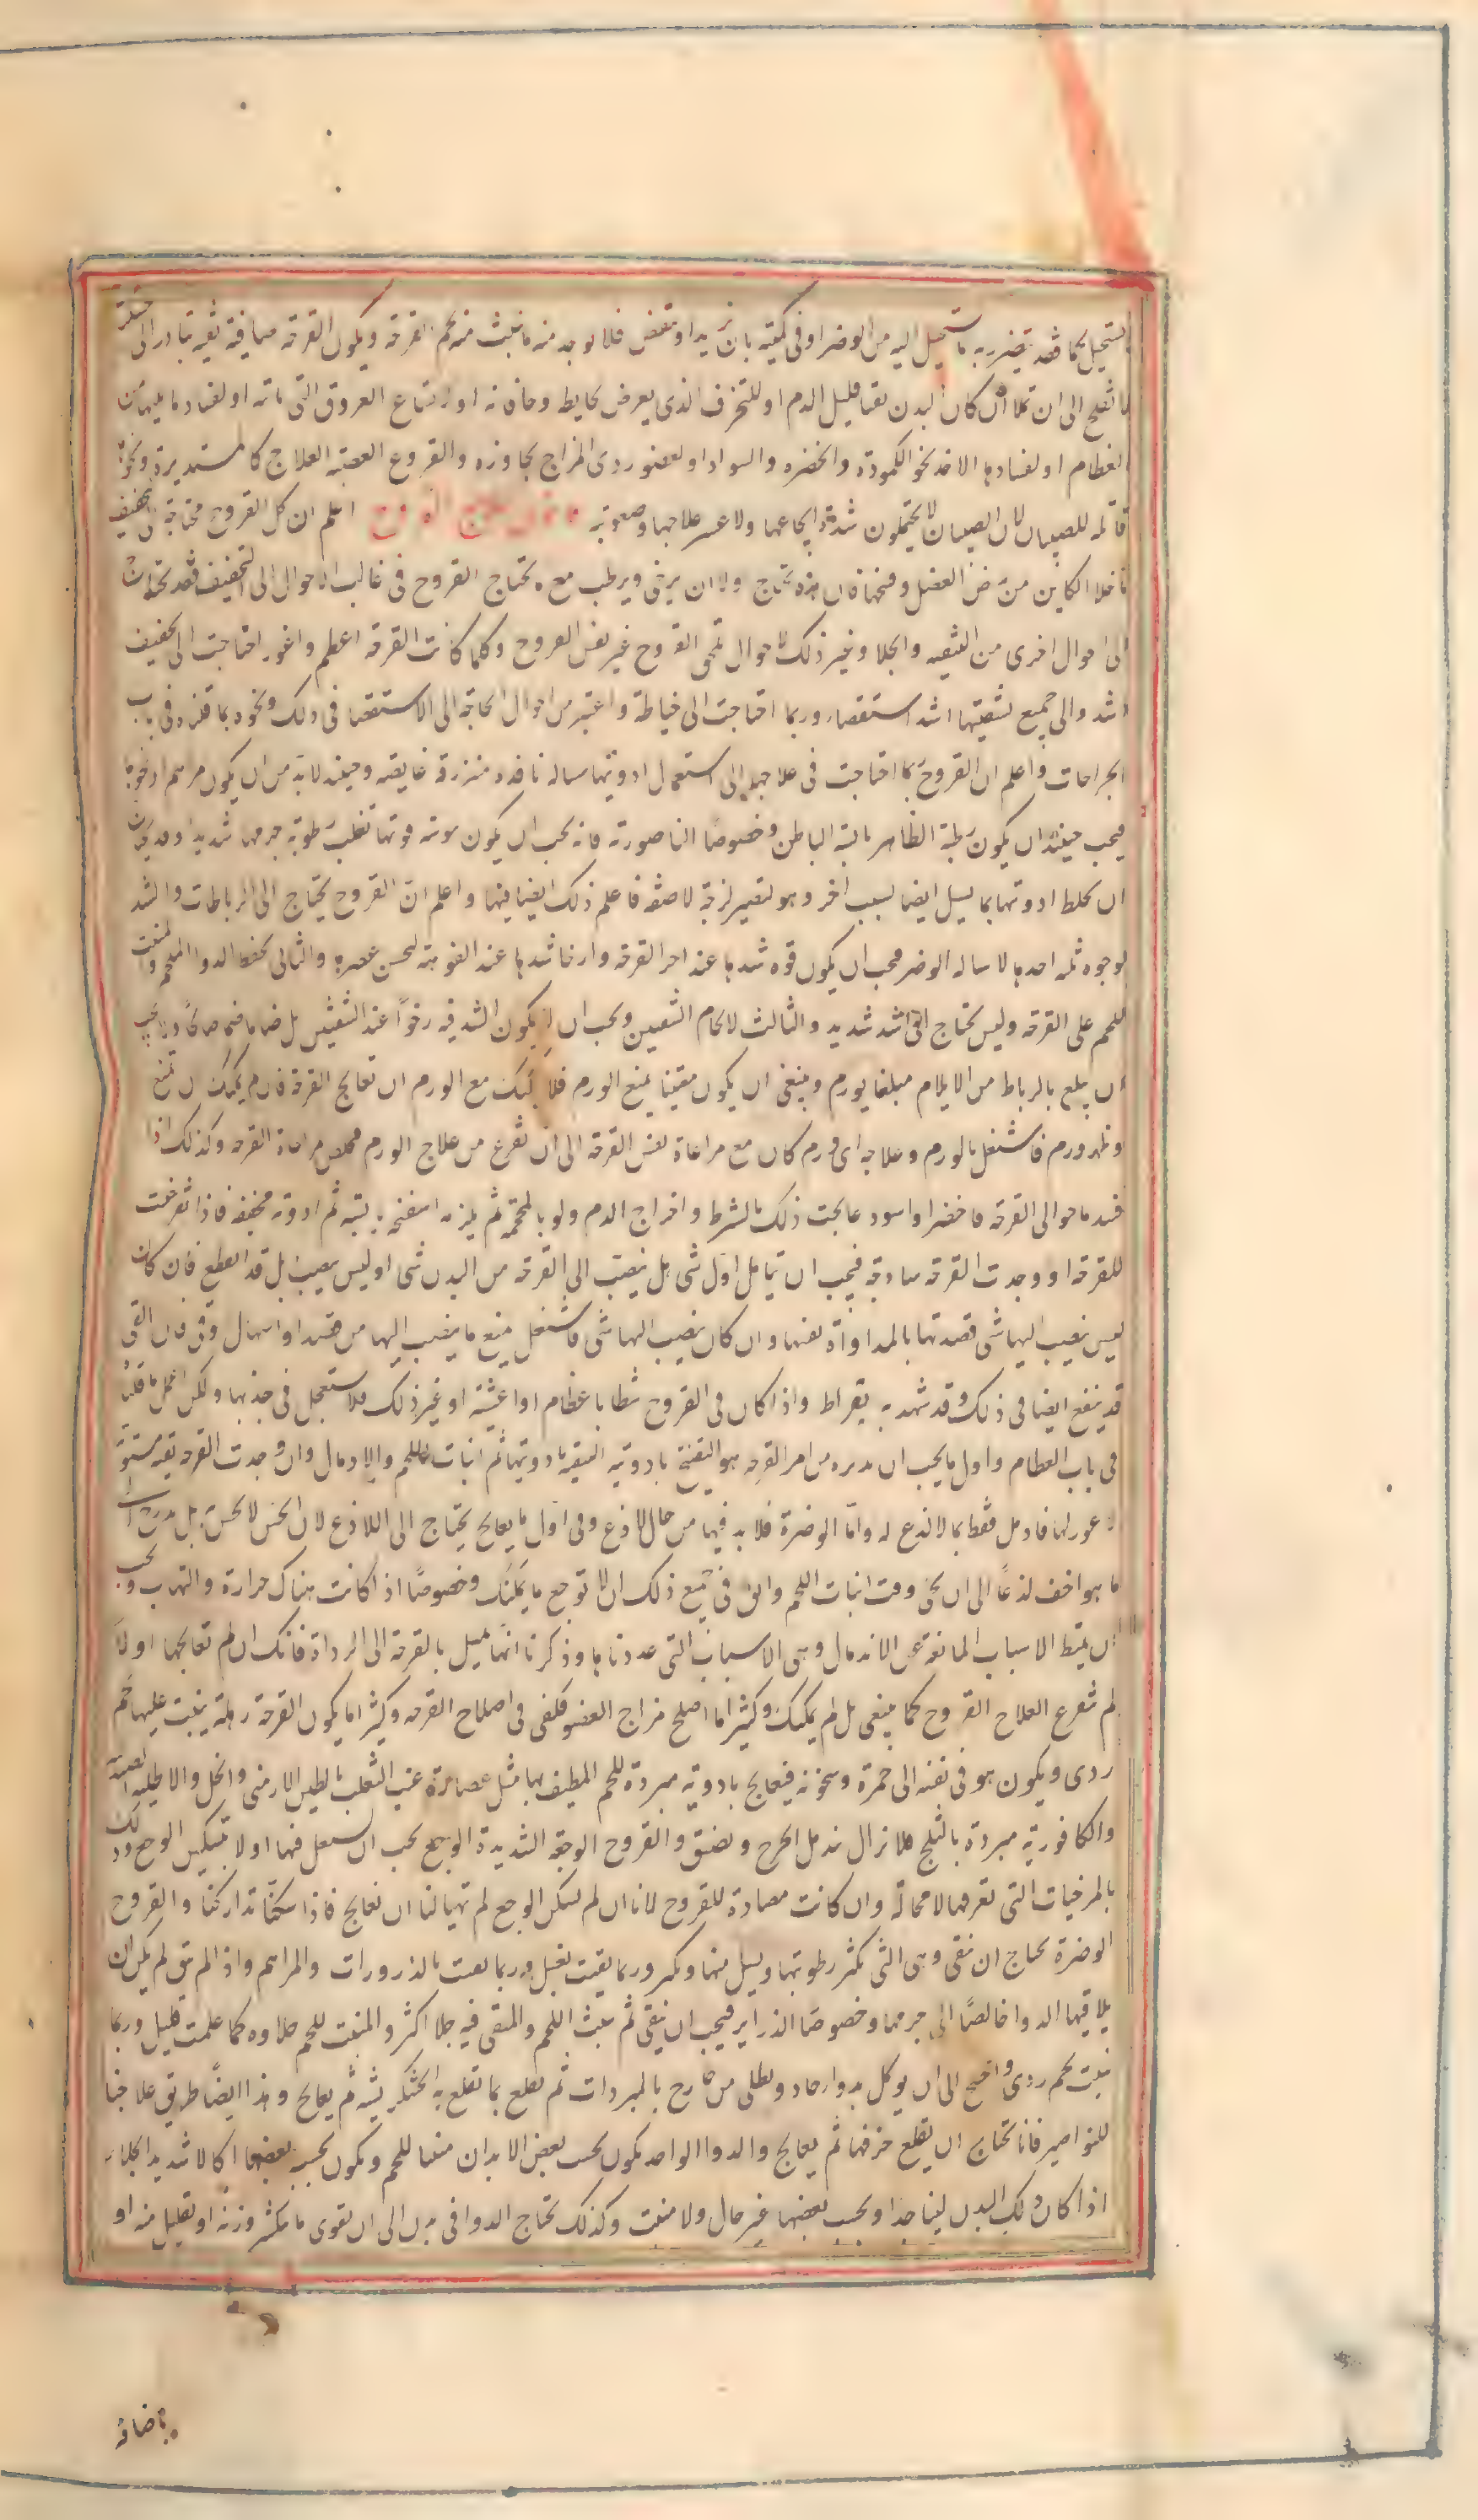 يستحيل كما قد يتضرر به ما يستحيل اليه من الوضر او فى كميته بان يزيد او ينقص فلا يوجد منه ما ينبت منه لحم القرحه ويكون القرحه صافية نقيه تبادر الى
ما تفلح الى ان تملا ان كان البدن نقيا قليل الدم او للتخزف الذى يعرض لحايط وحافاته او لاتساع العروق التى تاته او لفساد ما يليها من
العظام او لفسادها الاخذ نحو الكمودة والخضره والسواد او لعضو ردى المزاج يجاوره والقروح العصبه العلاج كالمستديرة ونحوها
قاتله للصبيان لان الصبيان لا يحتملون شدة ايجاعها ولا عسر علاجها وصعوبته اعلم ان كل القروح محتاجة الى تجفيف
ما خلا الكاين من رض العضل وفسخها فان هذه تحتاج اولا ان يرخى ويرطب مع ما يحتاج القروح فى غالب الاحوال الى التجفيف فقد تحتاج
الى احوال اخرى من التنقيه والجلا وغير ذلك لاحوال تلحق القروح غير نفس القروح وكلما كانت القرحه اعظم واغور احتاجت الى تجفيف
اشد والى جمع لشفتيها اشد استقصاء وربما احتاجت الى خياطة واعتبر من احوال الحاجة الى الاستقصا فى ذلك ونحوه بما قلناه فى باب
الجراحات واعلم ان القروح ربما احتاجت فى علاجها الى استعمال ادويتها سياله نافذه منزرقة غايصة وحينئذ لا بد من ان يكون مرهم او نحوها
فيجب حينئذ ان يكون رطبة الظاهر يابسة الباطن وخصوصا الناصورية فانه يجب ان يكون يبوسة قوتها تغلب رطوبة جرمها شديدا وقد يجب
ان يخلط ادويتها بما يسيل ايضا لسبب اخر وهو لتصير لزجة لاصقه فاعلم ذلك ايضا فيها واعلم ان القروح يحتاج الى الرباطات والشد
لوجوه ثلثه احدها لاساله الوضر فيجب ان يكون قوه شدها عند اخر القرحه وارخا شدها عند الفوهة ليحسن عصره والثانى لحفظ الدوا الملحم والمنبت
للحم على القرحه وليس تحتاج الى شد شديد والثالث لالحام الشقين ويجب ان لا يكون الشد فيه رخوا عند الشفتين بل ضاما ضما صالحا ولا يجب
ان يبلغ بالرباط من الايلام مبلغا يورم وينبغى ان يكون معينا يمنع الورم فلا يمكنك مع الورم ان تعالج القرحة فان لم يمكنك ان تمنع
وظهر ورم فاشتغل بالورم وعلاجه اى ورم كان مع مراعاة لنفس القرحة الى ان تفرغ من علاج الورم فتخلص مراعاة القرحه وكذلك اذا
فسد ما حوالى القرحه فاخضر او اسود عالجت ذلك بالشرط واخراج الدم ولو بالمحجمة ثم يلزمه اسفنجه يابسة ثم ادوية مجففه فاذا تفرغت
للقرحه او وجدت القرحه ساذجة فيجب ان تتامل اول شى هل ينصب الى القرحه من البدن شى او ليس ينصب بل قد انقطع فان كان
ليس ينصب اليها شى قصدتها بالمداواة لنفسها وان كان ينصب اليها شى فاشتغل بمنع ما ينصب اليها من فصد او اسهال وقى فان القى
قد ينفع ايضا فى ذلك وقد شهد به بقراط واذا كان فى القروح شظايا عظام او اغشية او غير ذلك فلا تستعجل فى جذبها ولكن اعمل ما قلناه
فى باب العظام واول ما يجب ان تدبره من امر القرحه هو التفتيح بادويه التنقيه بادويتها ثم انبات اللحم والادمال وان وجدت القرحه نقيه مستويه
لا غور لها فادمل فقط بما لا لذع له واما الوضرة فلا بد فيها من جال لاذع وفى اول ما يعالج يحتاج الى اللاذع لان الحس لا يحس به بل يدرج الى
ما هو اخف لذعا الى ان يجى وقت انبات اللحم وان فى جميع ذلك ان لا توجع ما يمكنك وخصوصا اذا كانت هناك حرارة والتهاب ويجب
ان يميط الاسباب المانعة عن الاندمال وهى الاسباب التى عددناها وذكرنا انها تميل بالقرحة الى الرداة فانك ان لم تعالجها اولا
لم تفرغ لعلاج القروح كما ينبغى بل لم يمكنك وكثيرا ما اصلح مزاج العضو فكفى فى اصلاح القرحه وكثيرا ما يكون القرحة رهلة ينبت عليها لحم
ردى ويكون هو فى نفسه الى حمرة وسخونة فيعالج بادوية مبردة للحم المطيف بها مثل عصارة عنب الثعلب بالطين الارمنى والخل والاطليه الصندليه
والكافورية مبردة بالثلج فلا تزال تدمل الجرح وتضيق والقروح الوجعة الشديدة الوجع يجب ان تشتغل فيها اولا بتسكين الوجع وذلك
بالمرخيات التى تعرفها لا محالة وان كانت مضادة للقروح لانا ان لم نسكن الوجع لم يتهيا لنا ان نعالج فاذا سكناه تداركنا والقروح
الوضرة تحتاج ان ينقى وهى التى تكثر رطوبتها ويسيل منها وتكثر وربما نقيت بغسل وربما نقيت بالذرورات والمراهم واذا لم ينق لم يمكن ان
يلاقيها الدوا خالصا الى جرمها وخصوصا الذراير فيجب ان ينقى ثم ينبت اللحم والمنقى فيه جلا اكثر والمنبت للحم جلاوه كما علمت قليل وربما
نبت لحم ردى واحتيج الى ان يوكل بدوا حاد ويطلى من خارج بالمبردات ثم يقلع بما تقلع به الخشكريشه ثم يعالج وهذا ايضا طريق علاجنا
للنواصير فانا نحتاج ان نقلع خزفها ثم يعالج والدوا الواحد يكون بحسب بعض الابدان منبتا للحم ويكون بحسب بعضها اكالا شديد الجلاء
اذا كان ذلك البدن لينا جدا وبحسب بعضها غير جال ولا منبت وكذلك تحتاج الدوا فى بدن الى ان يقوى ما يكثر وزنه او تقليل منه او
باضافه